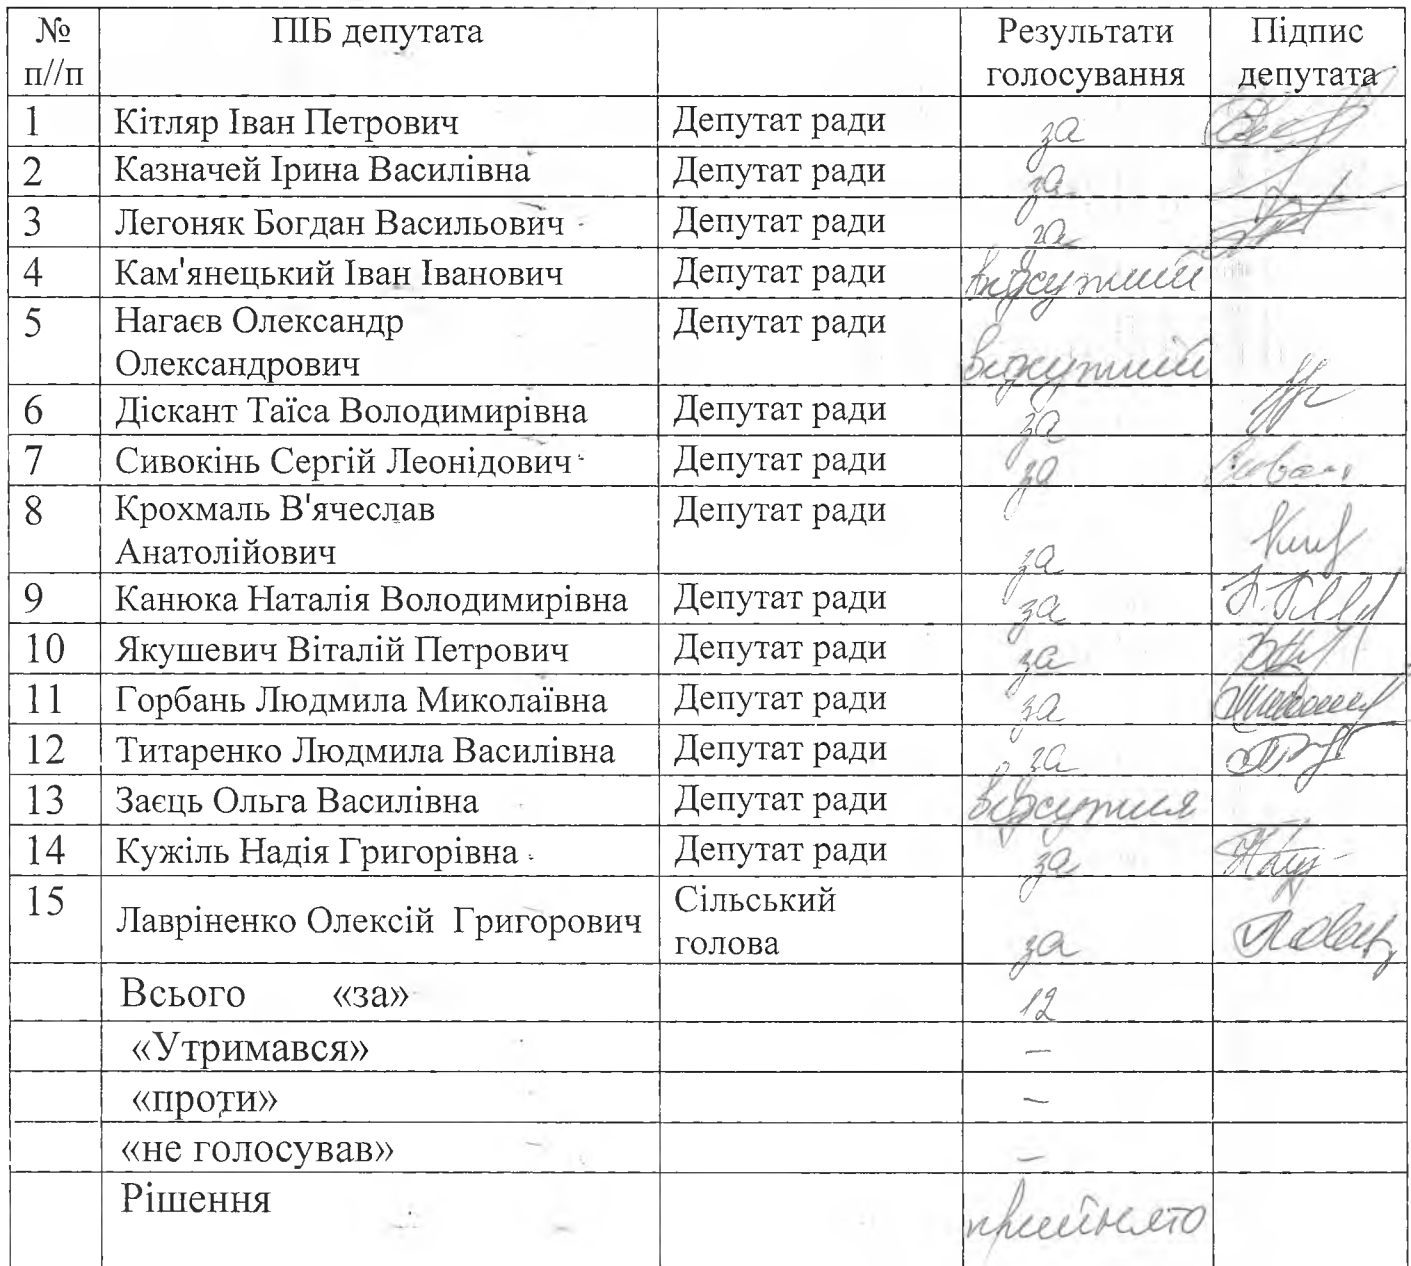 № п//п ПІБ депутата Результати голосування Підпис депутата
1 Кітляр Іван Петрович Депутат ради за
2 Казначей Ірина Василівна Депутат ради за
3 Легоняк Богдан Васильович Депутат ради за
4 Кам'янецький Іван Іванович Депутат ради відсутний
5 Нагаєв Олександр Олександрович Депутат ради відсутний
6 Діскант Таїса Володимирівна Депутат ради за
7 Сивокінь Сергій Леонідович Депутат ради за
8 Крохмаль В'ячеслав Анатолійович Депутат ради за
9 Канюка Наталія Володимирівна Депутат ради за
10 Якушевич Віталій Петрович Депутат ради за
11 Горбань Людмила Миколаївна Депутат ради за
12 Титаренко Людмила Василівна Депутат ради за
13 Заєць Ольга Василівна Депутат ради відсутня
14 Кужіль Надія Григорівна Депутат ради за
15 Лавріненко Олексій Григорович Сільський голова за
Всього «за» 12
«Утримався» –
«проти» –
«не голосував» –
Рішення прийнято